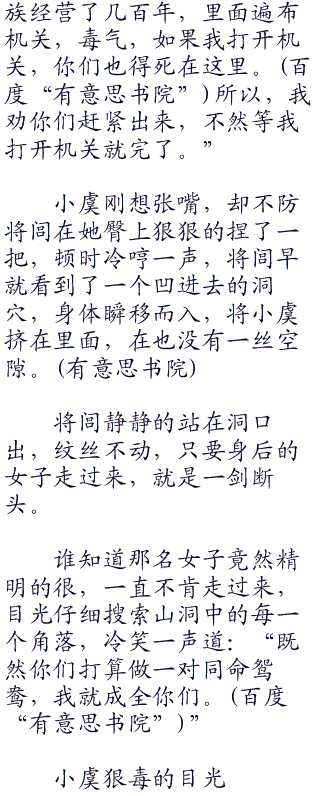 族经营了几百年，里面遍布
机关，毒气，如果我打开机
关，你们也得死在这里。(百
度“有意思书院”)所以，我
劝你们赶紧出来，不然等我
打开机关就完了。”
小虞刚想张嘴，却不防
将闾在她臀上狠狠的捏了一
把，顿时冷哼一声，将闾早
就看到了一个凹进去的洞
穴，身体瞬移而入，将小虞
挤在里面，在也没有一丝空
隙。(有意思书院)
将闾静静的站在洞口
出，纹丝不动，只要身后的
女子走过来，就是一剑断
头。
谁知道那名女子竟然精
明的很，一直不肯走过来，
目光仔细搜索山洞中的每一
个角落，冷笑一声道：“既
然你们打算做一对同命鸳
鸯，我就成全你们。(百度
“有意思书院”)”
小虞狠毒的目光